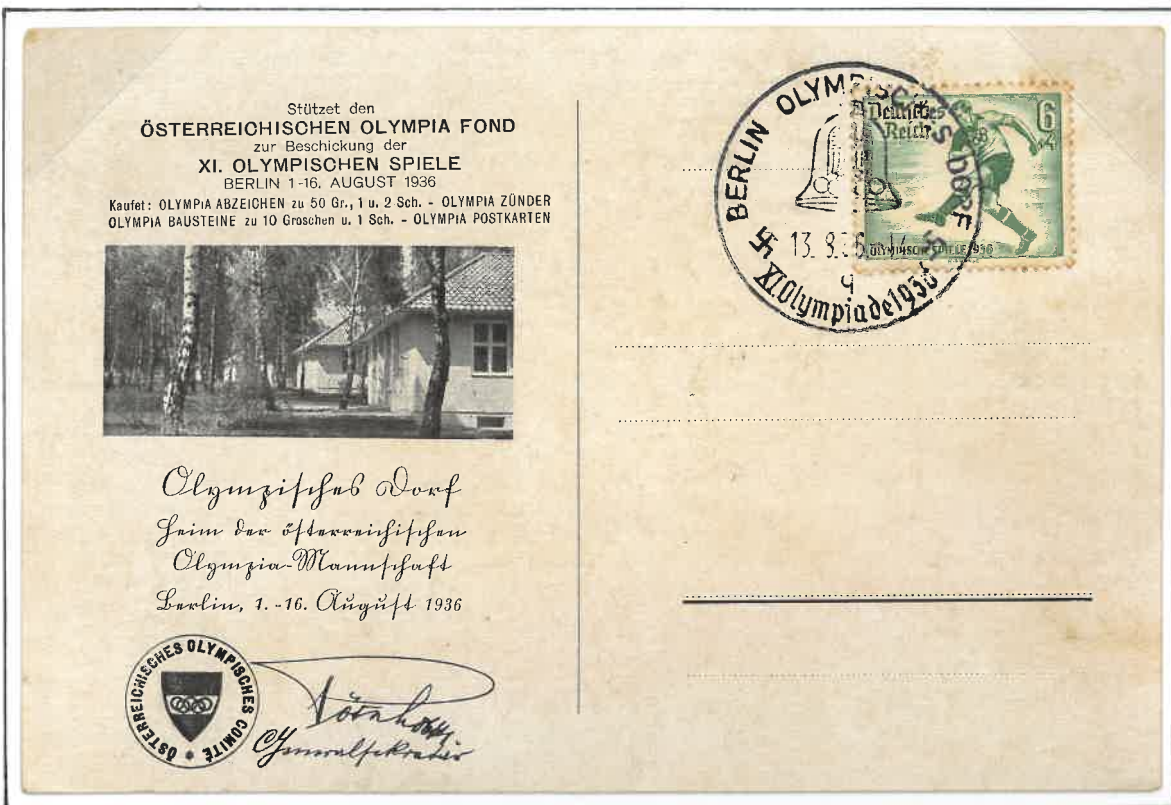 Stützet den
ÖSTERREICHISCHEN OLYMPIA FOND
zur Beschickung der
XI. OLYMPISCHEN SPIELE
BERLIN 1-16. AUGUST 1936
Kaufet: OLYMPIA ABZEICHEN zu 50 Gr., 1 u. 2 Sch. - OLYMPIA ZÜNDER
OLYMPIA BAUSTEINE zu 10 Groschen u. 1 Sch. - OLYMPIA POSTKARTEN
Olympisches Dorf
Heim der österreichischen
Olympia-Mannschaft
Berlin, 1.-16. August 1936
ÖSTERREICHISCHES OLYMPISCHES COMITÉ
Generalsekretär
BERLIN OLYMPISCHES DORF
13. 8.36
XI. Olympiade 1936
Deutsches
Reich
6
+4
OLYMPISCHE SPIELE 1936